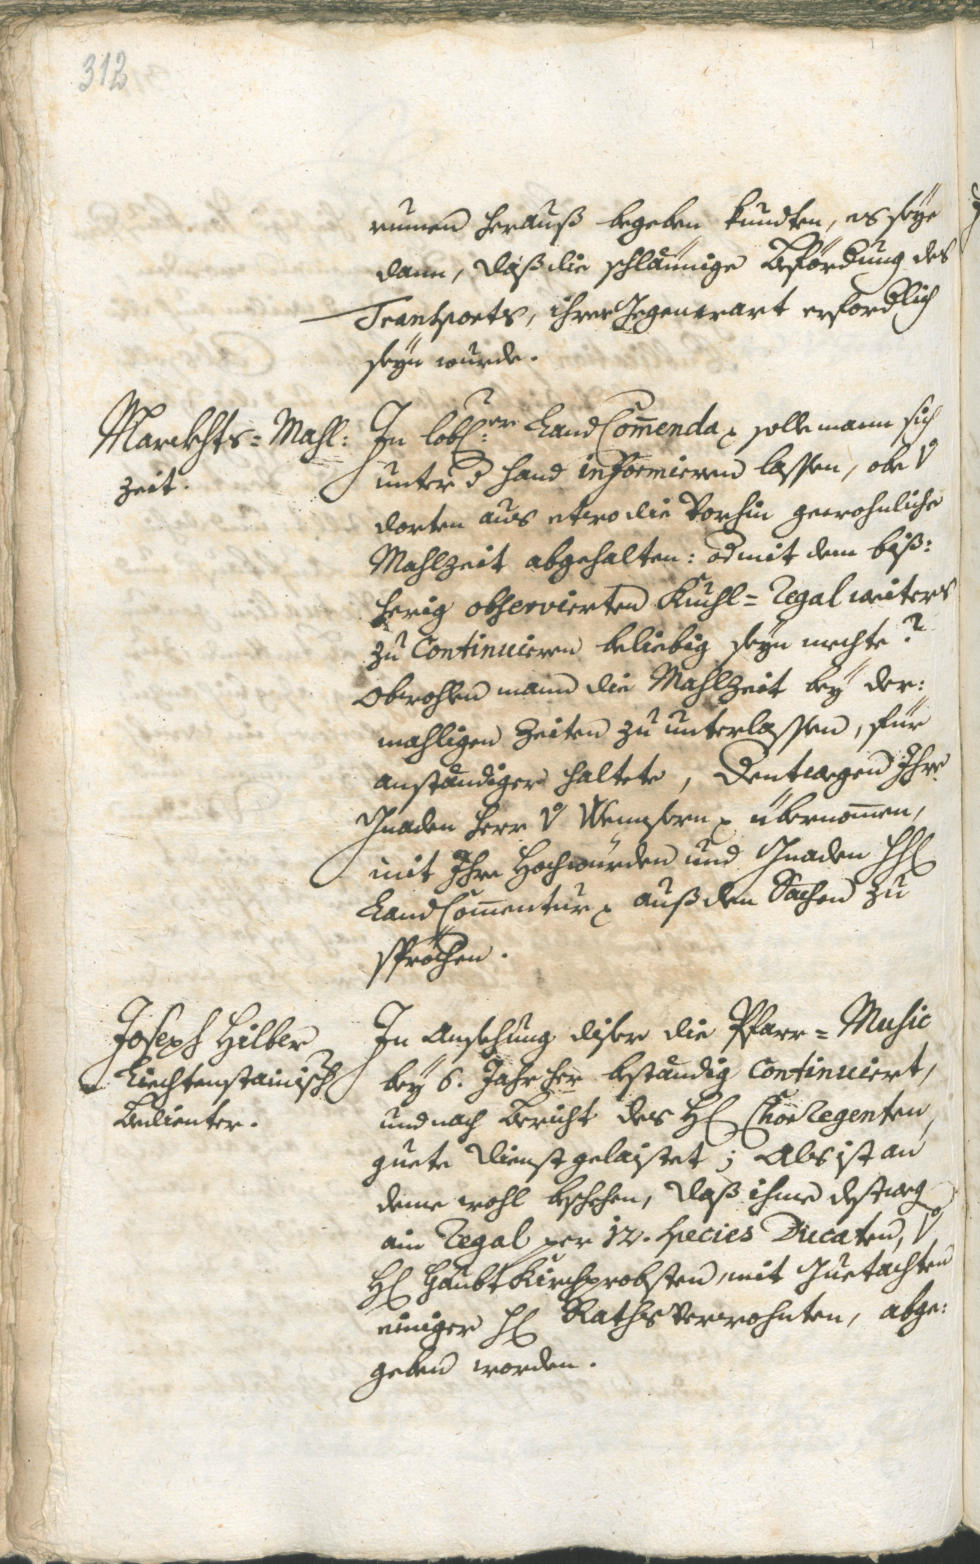 312
nunen herauß begeben kundten, es seÿe
dann, daß die schleunige Beförd͞ung des
Transports, ihrer Gegenwart erford͞lich
seÿn wurde.
Marckhts=Mahl:
zeit.
In lobl:er Land Com̅enda solle mann sich
unter d͞ hand informieren lassen, obe
dorten aus etwo die vorhin gewohnliche
Mahlzeit abgehalten: od͞ mit dem biß:
herig observierten Kuchl=Regal weiters
zu Continuieren beliebig seÿn mechte?
obwohlen mann die Mahlzeit beÿ der:
mahligen Zeiten zu unterlassen, für
anständiger haltete, dentwegen Ihre
Gnaden Herr v übernom̅en,
mit Ihro Hochwürden und Gnaden HH
Land Com̅entur auß den Sachen zu
sprechen.
Joseph Hilber
Liechtenstainisch
Bedienter.
In Ansehung diser die Pfarr=Music
beÿ 6. Jahr her beständig Continuiert,
und nach Bericht des H Chor Regenten,
guete Dienst gelaistet; Als ist an
deme wohl beschehen, daß ihme destweg
ain Regal per 12. species Ducaten, v
H Haubt Kirchprobsten, mit Guetachten
einiger H Raths Verwohnten, abge:
geben worden.